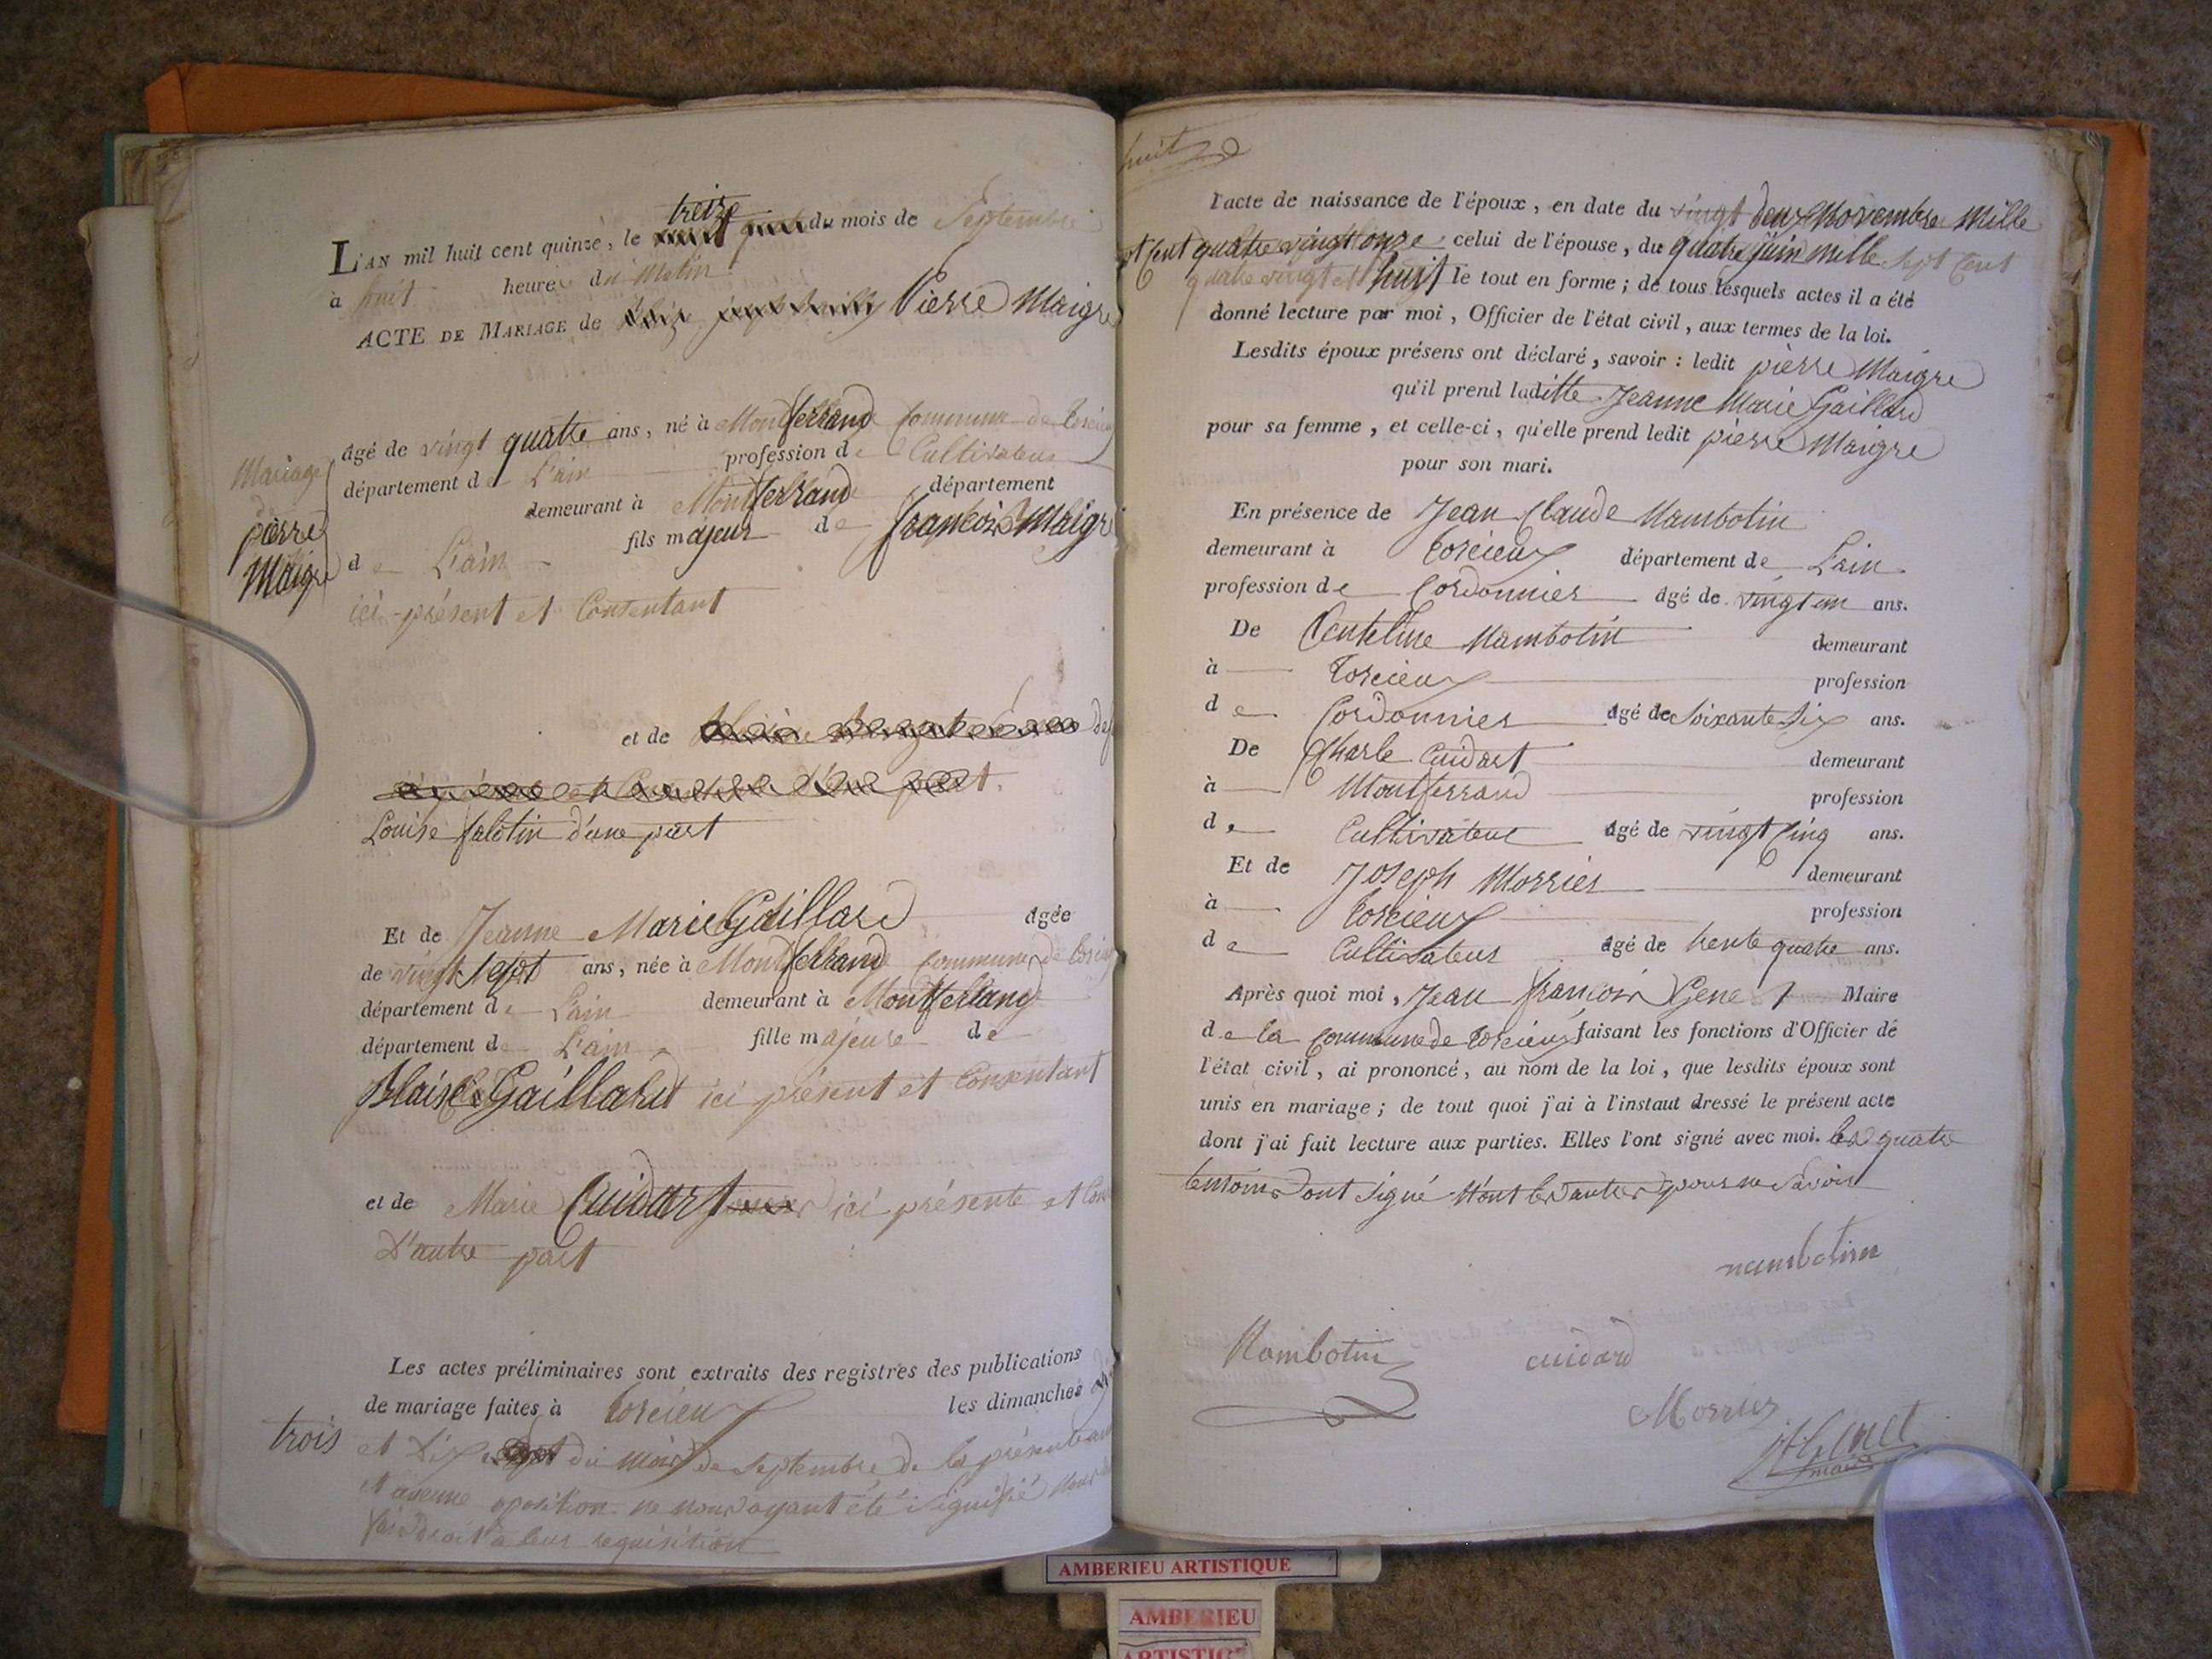 treize
L'AN mil huit cent quinze, le du mois de Septembre
à huit heure du Matin
ACTE DE MARIAGE de Pierre Maigre
agé de vingt quatre ans, né à Montferrand Commune de Torcieu
département de L'ain profession de Cultivateur
demeurant à Montferrand département
de L'ain fils majeur de françois Maigre
ici présent et Consentant
Mariage
de
pierre
Maigre
et de
Louise falotin d'une part
Et de Jeanne Marie Gaillard agée
de vingt sept ans, née à Montferrand Commune de Torcieu
département de L'ain demeurant à Montferrand
département de L'ain fille majeure de
Blaise Gaillard ici présent et Consentant
et de Marie Cuidart ici présente et
D'autre part
Les actes préliminaires sont extraits des registres des publications
de mariage faites à Torcieux les dimanches
trois et Dix du mois de Septembre de la présente
et aucune oposition ne nous ayant été signifié
droit à leur requisition
huit
l'acte de naissance de l'époux, en date du vingt deux Novembre Mille
sept Cent quatre vingt onze celui de l'épouse, du quatre juin mille sept Cent
quatre vingt et huit le tout en forme; de tous lesquels actes il a été
donné lecture par moi, Officier de l'état civil, aux termes de la loi.
Lesdits époux présens ont déclaré, savoir: ledit pierre Maigre
qu'il prend laditte Jeanne Marie Gaillard
pour sa femme, et celle-ci, qu'elle prend ledit pierre Maigre
pour son mari.
En présence de Jean Claude Nambotin
demeurant à Torcieux département de L'ain
profession de Cordonnier agé de vingt un ans.
De Centeline Nambotin demeurant
à Torcieux profession
de Cordonnier agé de Soixante Six ans.
De Charle Cuidart demeurant
à Montferrand profession
de Cultivateur agé de vingt Cinq ans.
Et de Joseph Morrier demeurant
à Torcieux profession
de Cultivateur agé de trente quatre ans.
Après quoi moi, Jean françois Gene Maire
de la Commune de Torcieux faisant les fonctions d'Officier dé
l'état civil, ai prononcé, au nom de la loi, que lesdits époux sont
unis en mariage; de tout quoi j'ai à l'instaut dressé le présent acte
dont j'ai fait lecture aux parties. Elles l'ont signé avec moi. les quatre
temoins ont signé Nont les autres pour ne Savoir
nambotin
Nambotin cuidard
Morrier
Genet
maire
AMBERIEU ARTISTIQUE
AMBERIEU
ARTISTIQ